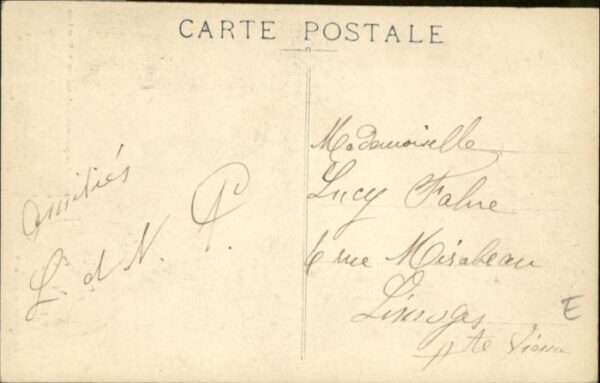 CARTE POSTALE
amitiés
L. d N. P.
Mademoiselle
Lucy Fabre
6 rue Mirabeau
Limoges
Hte Vienne
E